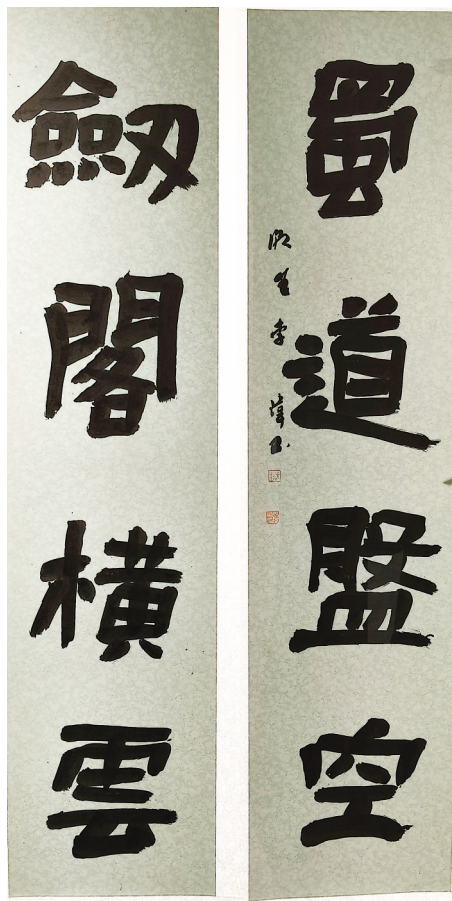 蜀道盤空
劔閣橫雲